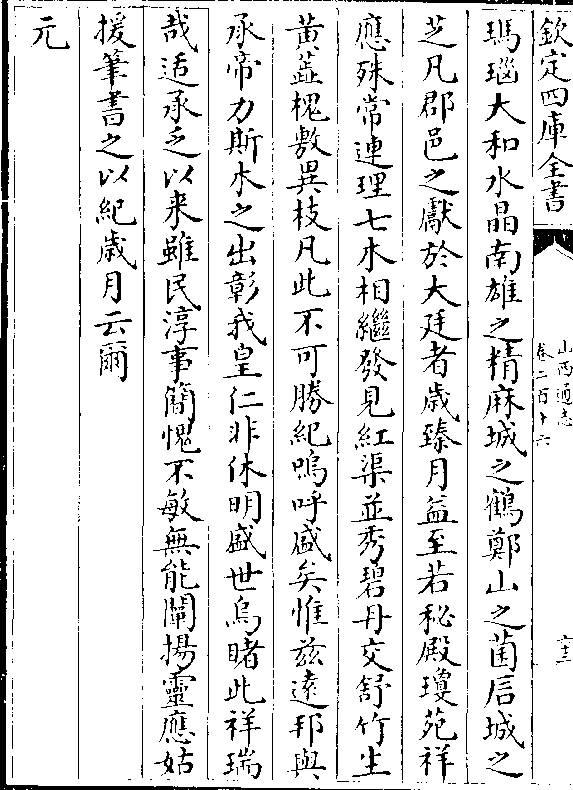 欽定四庫全書
山西通志
卷二百十六
六十三
瑪瑙大和水晶南雄之精麻城之鶴鄭山之菌后城之
芝凡郡邑之獻於大廷者歲臻月益至若秘殿瓊苑祥
應殊常連理七木相繼發見紅渠並秀碧丹交舒竹生
黃蓝槐敷異枝凡此不可勝紀嗚呼盛矣惟兹逺邦與
承帝力斯木之出彰我皇仁非休明盛世烏睹此祥瑞
哉适承乏以来雖民淳事簡愧不敏無能闡揚靈應姑
援筆書之以紀歳月云爾
元